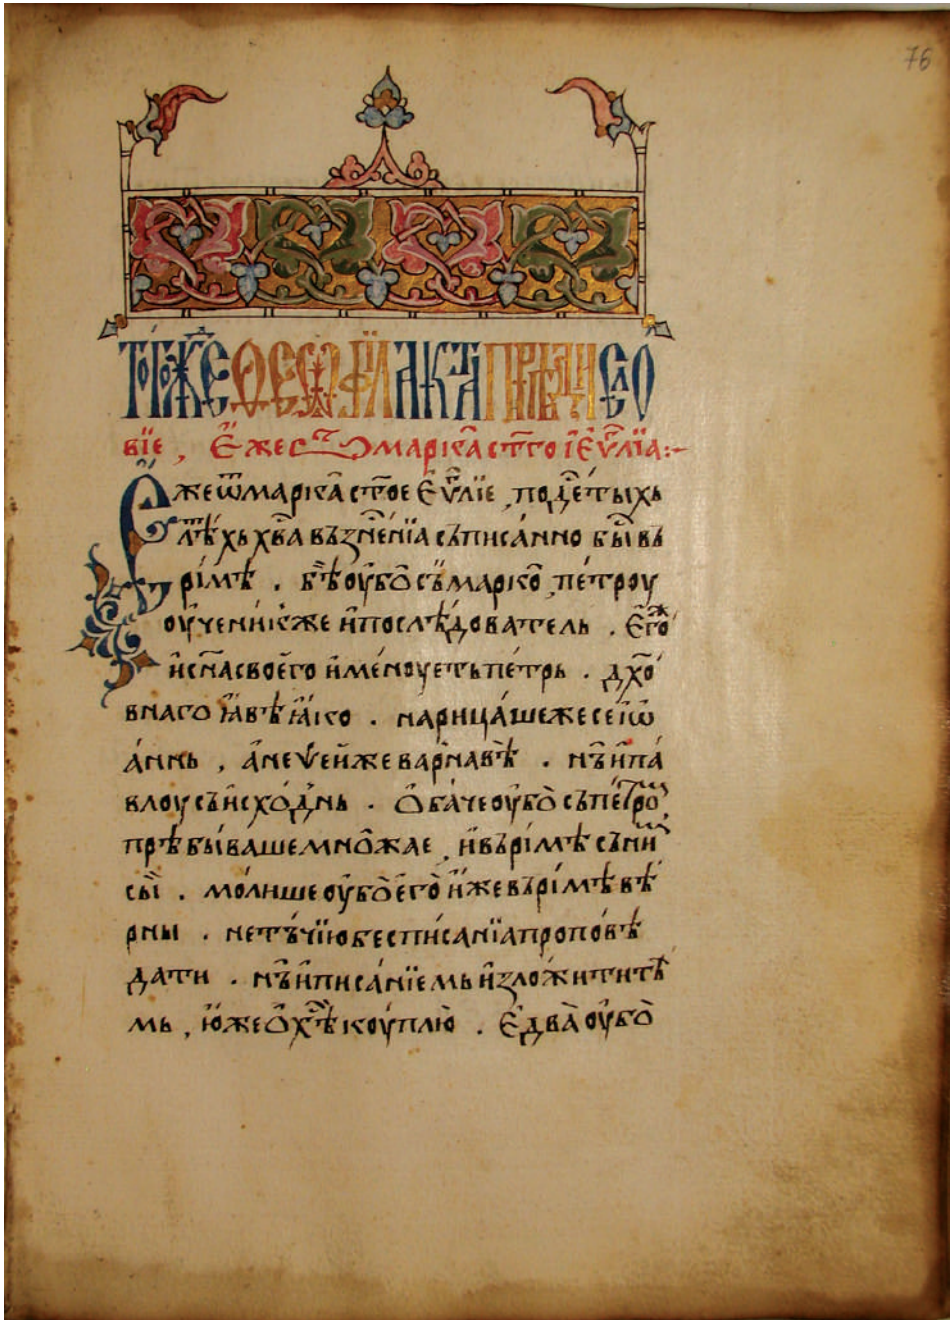 76
Тогоже Ѳеѡфилакта прѣдисло
вїе, Еже ѿ марка ст҃го еѵ҃лїа:~
Еже ѿ марка ст҃ое еѵ҃лїе, по десѧтыхь
лѣ́хь хв҃а възнесе́нїа съписа́нно бы́ въ
рі́мѣ . бѣ оу҆бо съи марко, пе́троу
оу҆чени́кже и҆послѣ́дователь . его́же
и҆сн҃асвоего и҆мену́еть пе́трь . дх҃о́
внаго ꙗ҆́вѣ ꙗ҆́ко . нарица́шежесе і҆ѡ
а́ннь , а҆неѱе́йже варна́вѣ . нъ̀ и҆па́
влоу съи҆схо́дныь . Ѻ҆ба́че оу҆бо̀ съпе́тром
прѣбыва́ше мно́жае , и҆въри́мѣ съни́м
сы́и . мо́лише оу҆бо̀ е҆го̀ и҆́же въри́мѣ вѣ́
рны . не тъ́чїю беспи́санїа проповѣ́
дати . нъ̀ и҆писа́нїемь и҆зложи́ти тѣ́
мь , ю҆́же ѡ҆хс҃ѣ̀ коу́плю̀ . Е҆два̀ оу҆бо̀